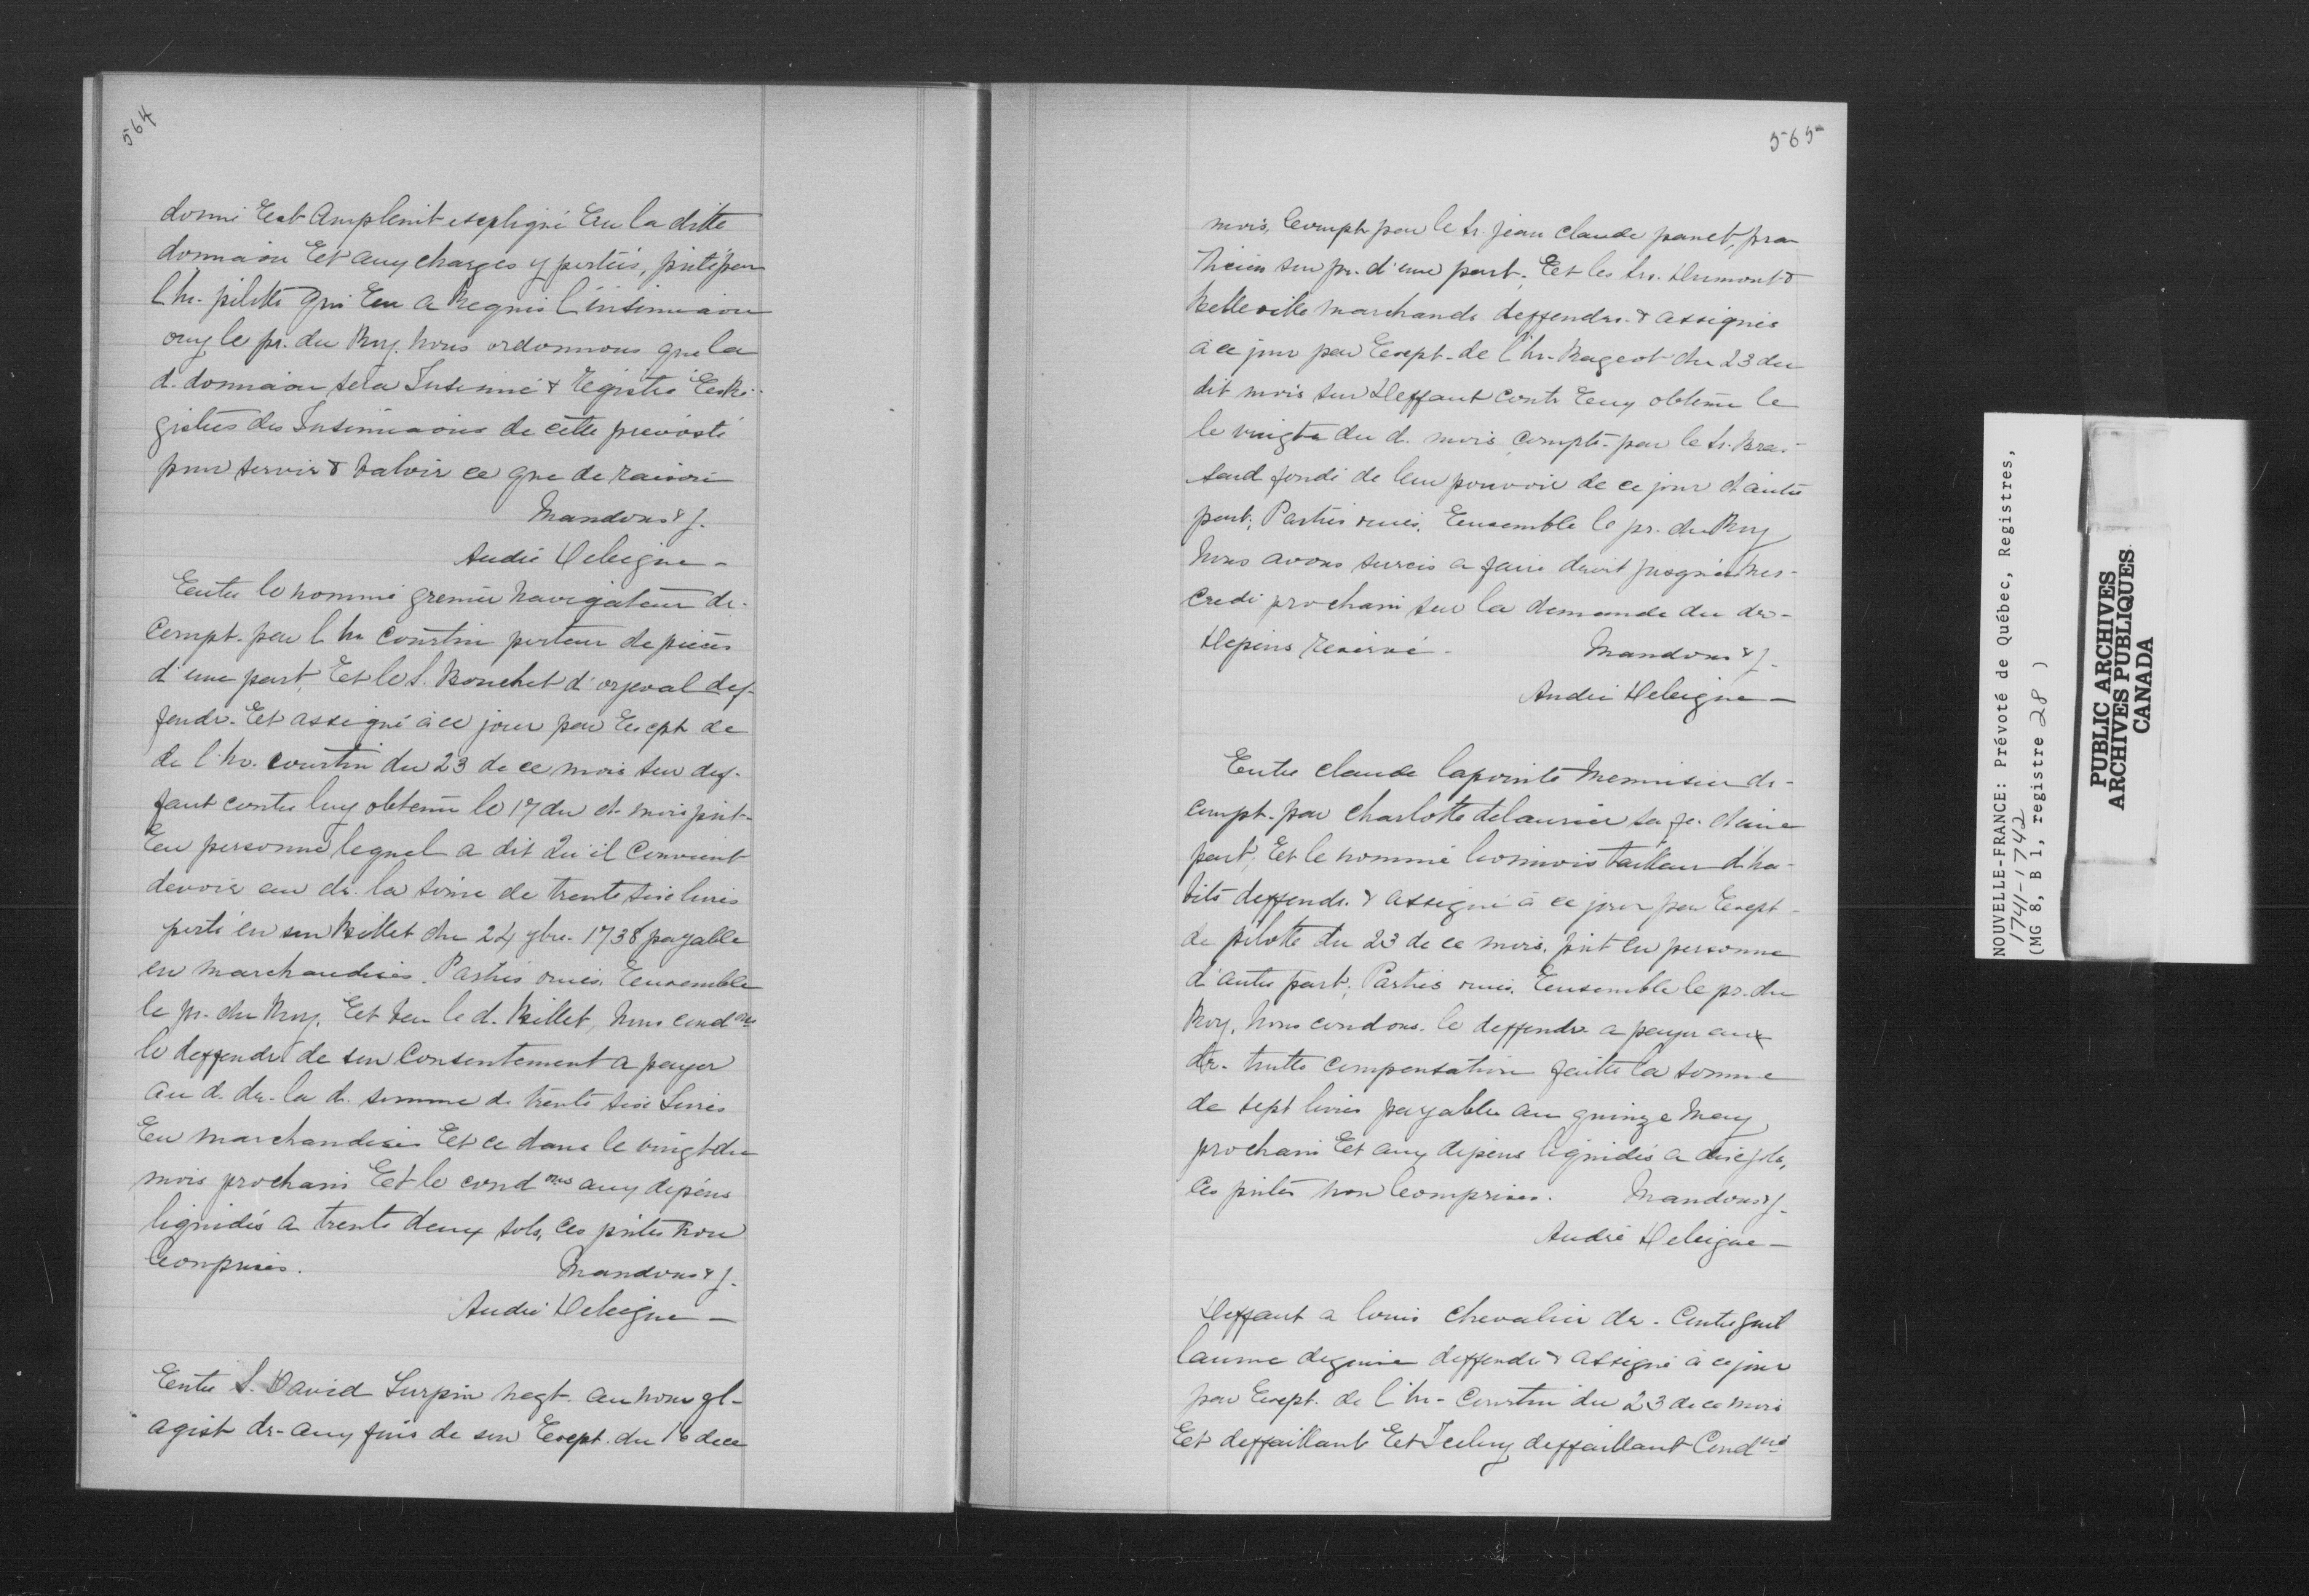 564
donné Est Amplemt expliqué En la ditte
donnaion Et aux charges y portéés, pntée par
l'hr. pilotte qui En a Requis l'insinuaion
ouy le pr. du Roy. Nous ordonnons que la
d. donnaion sera Insinué & Régistré Es Ré-
gistres des Insinuaions de cette prevosté
pour servir & valoir ce que de raison
Mandons & J.
André Deleigne -
Entre le nommé grenier Navigateur dr.
Compt. par l'hr Courtin porteur de pieces
d'une part, Et le S. Bouchet d'orjeval def-
fendr. Et assigné à ce jour par Exept de
de l'hr. Courtin du 23 de ce mois sur def-
faut contre luy obtenu le 17 du d. mois pnt-
En personne lequel a dit Qu'il Convient
devoir au dr. la sôme de trente six livres
porté en son Billet du 24 9bre. 1738 payable
en marchandises. Parties ouies, Ensemble
le pr. du Roy. Et Veu le d. Billet, Nous condons
le deffendr. de son Consentement a payer
au d. dr. la d. somme de trente six Livres
En marchandises Et ce dans le vingt du
mois prochain Et le condons aux dépens
liquidés a trente deux sols, Ces pntes non
Comprises.
Mandons & J.
André Deleigne -
Entre S. David Turpin negt. au nom ql-
agist dr. aux fins de son Exept. du 16 de ce
565
mois, Compt par le Sr. jean claude panet, pra-
ticien son pr. d'une part, Et les Srs. Dumont &
Belleville Marchands deffendrs. & assignés
à ce jour par Exept. de l'hr. Rageot du 23 du
dit mois sur Deffaut contr Eux obtenu le
le vingt du d. mois Compts. par le Sr. Bra-
sard fondé de leur pouvoir de ce jour d'autre
part; Parties ouies, Ensemble le pr. du Roy
Nous avons surcis a faire droit jusqu'à Mer-
credi prochain sur la demande du dr-
Depens reservé.
Mandons & J.
André Deleigne -
Entre claude lapointe Menuisier dr-
compt. par Charlotte delaurier sa fe. d'une
part, Et le nommé tailleur d'ha-
bits deffendr. & assigné à ce jour par Exept-
de pilotte du 23 de ce mois, pnt en personne
d'autre part; Parties ouies, Ensemble le pr. du
Roy, Nous condons. le deffendr a payer aux
dr. toutte compensation faitte la somme
de sept livres payables au quinze May
prochain Et aux dépens liquidés a dix sols,
Ces pntes non Comprises.
Mandons & J.
André Deleigne -
Deffaut a louis Chevalier dr. Contre Guil
laume deguise deffendr & assigné à ce jour
par Exept. de l'hr. Courtin du 23 de ce mois
Et deffaillant Et Iceluy deffaillant Condné
NOUVELLE-FRANCE: Prévoté de Québec, Registres,
1741-1742
(MG 8, B 1, registre 28 )
PUBLIC ARCHIVES
ARCHIVES PUBLIQUES
CANADA